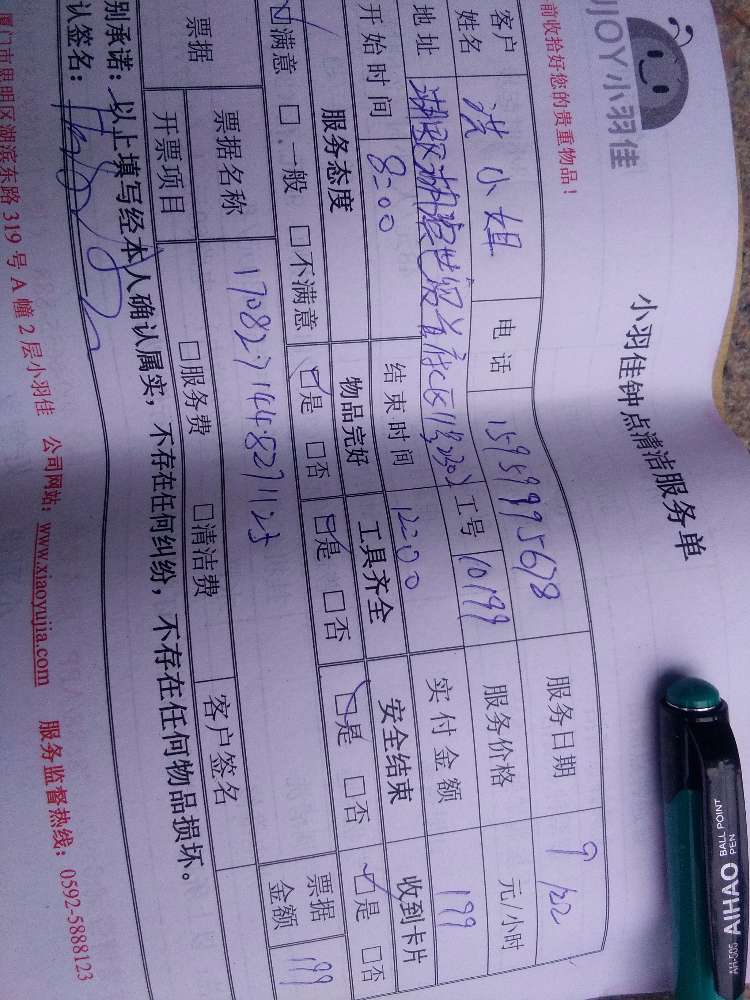 JOY小羽佳
前收拾好您的贵重物品！
小羽佳钟点清洁服务单
客户姓名 洪小姐 电话 15959995678 服务日期 9/22
地址 工号 10199 服务价格 元/小时
开始时间 8:00 结束时间 12:00 实付金额 199
服务态度 物品完好 工具齐全 安全结束 收到卡片
☑满意 □一般 □不满意 ☑是 □否 ☑是 □否 ☑是 □否 ☑是 □否
票据 票据名称 票据金额 199
开票项目 □服务费 □清洁费 客户签名
别承诺：以上填写经本人确认属实，不存在任何纠纷，不存在任何物品损坏。
认签名：
厦门市思明区湖滨东路319号A幢2层小羽佳 公司网站：www.xiaoyujia.com 服务监督热线：0592-5888123
AIHAO BALL POINT PEN